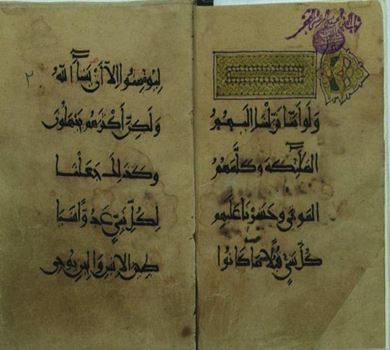 ولو اننا نزلنا اليهم
الملئكة وكلمهم
الموتى وحشرنا عليهم
كل شي قبلا ما كانوا
ليومنوا الا ان يشا الله
ولكن اكثرهم يجهلون
وكذلك جعلنا
لكل نبي عدوا شيا
طين الانس والجن يوحي